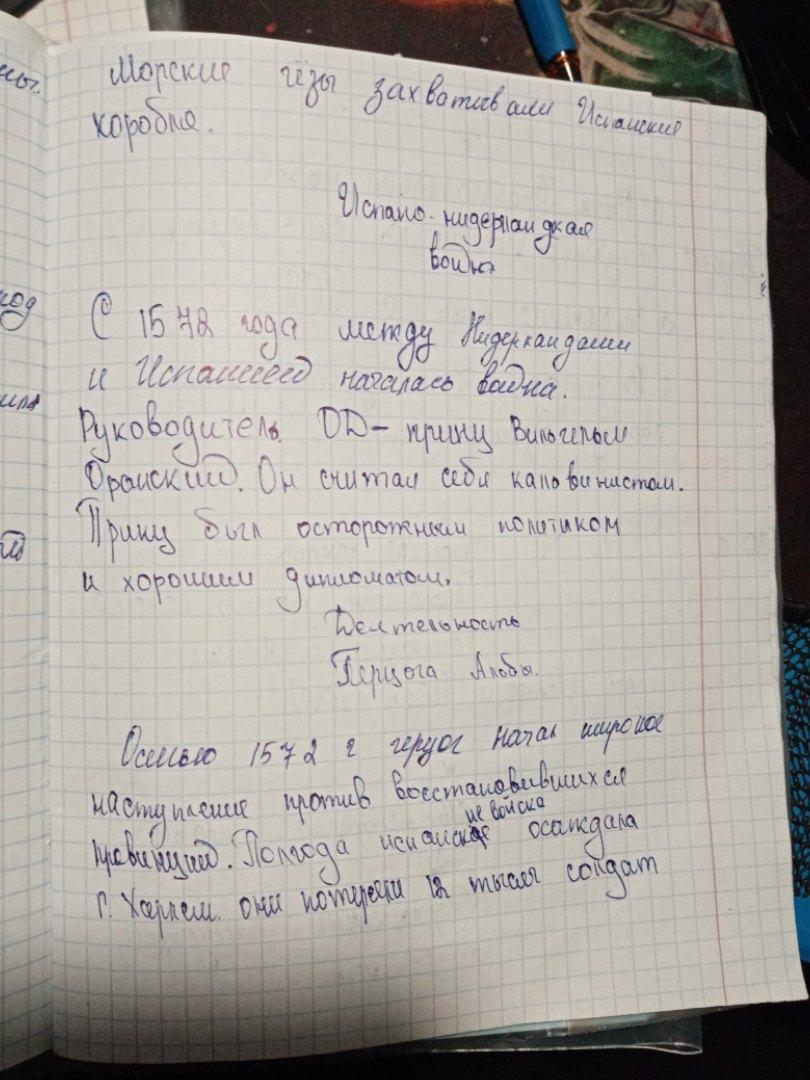 Морские гёзы захватывали Испанские
корабле.
Испано-нидерландкая
война
С 1572 года между Нидерландами
и Испанией началась война.
Руководитель ОД - принц Вильгельм
Оранский. Он считал себя кальвинистом.
Принц был осторожным политиком
и хорошим дипломатом.
Деятельность
Герцога Альбы.
Осенью 1572 г герцог начал широкое
наступление против восстановившихся
не войска
провинций. Полгода испанск осаждала
г. Харлем. они потеряли 12 тысяч солдат